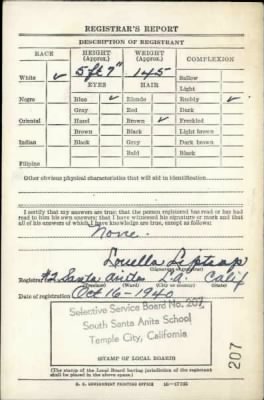 REGISTRAR'S REPORT
DESCRIPTION OF REGISTRANT
RACE HEIGHT (Approx.) WEIGHT (Approx.) COMPLEXION
5 ft 9" 145
White ✓ EYES HAIR Sallow
Light
Negro Blue ✓ Blonde Ruddy ✓
Gray Red Dark
Oriental Hazel Brown ✓ Freckled
Brown Black Light brown
Indian Black Gray Dark brown
Bald Black
Filipino
Other obvious physical characteristics that will aid in identification
I certify that my answers are true; that the person registered has read or has had
read to him his own answers; that I have witnessed his signature or mark and that
all of his answers of which I have knowledge are true, except as follows:
None.
Louella
(Signature of registrar)
Registrar for #2 Santa Anita L.A. Calif
(Precinct) (Ward) (City or county) (State)
Date of registration Oct 16-1940
Selective Service Board No. 207
South Santa Anita School
Temple City, California
(STAMP OF LOCAL BOARD)
(The stamp of the Local Board having jurisdiction of the registrant
shall be placed in the above space.)
U. S. GOVERNMENT PRINTING OFFICE 16-17105
207